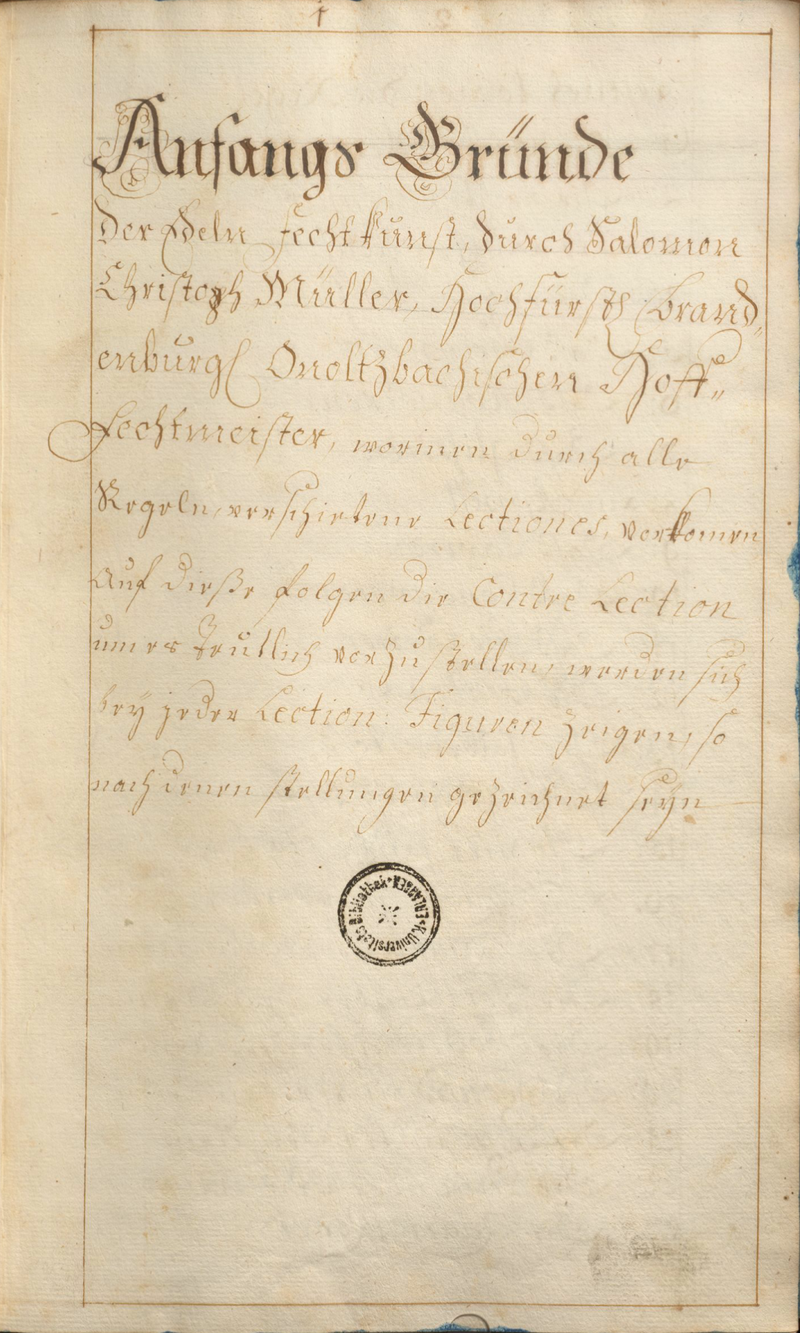 1
Anfangs Gründe
Der Edeln Fechtkunst, durch Salomon
Christoph Müller, Hochfürstl Brand„
enburgl Onoltzbachischen Hoff„
Fechtmeister, worinen durch alle
Regeln, verschietene Lectiones, vorkomen
Auf dieße folgen die Contre Lection
um es Teutlich vorzustellen, werden sich
bey jeder Lection: Figuren zeigen, so
nach denen stellungen gezeichnet seyn
K. Universitäts Bibliothek * ERLANGEN *